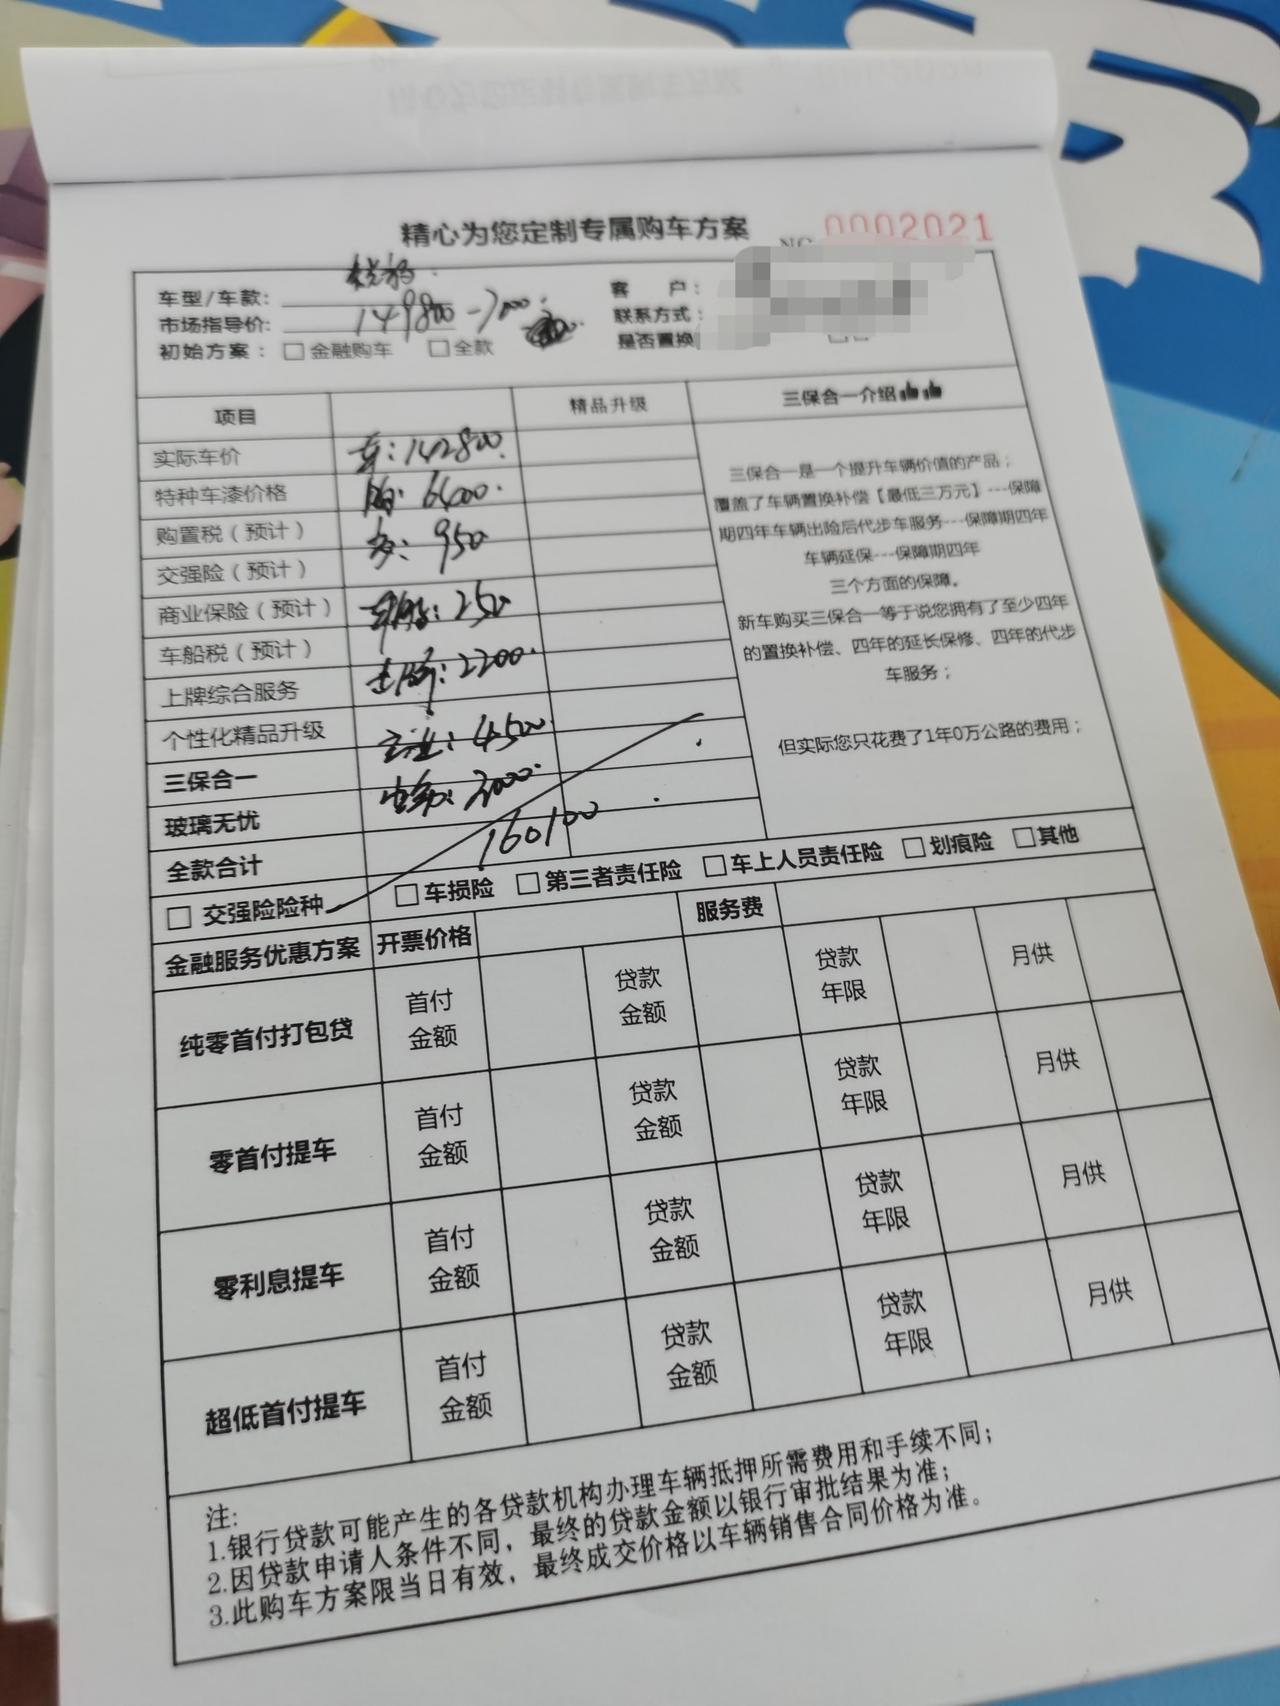 精心为您定制专属购车方案
0002021
车型/车款:
市场指导价: 149800-7000
初始方案: □ 金融购车 □ 全款
客 户:
联系方式:
是否置换
项目 精品升级 三保合一介绍
实际车价 车:142800.
特种车漆价格
购置税(预计) 950
交强险(预计)
商业保险(预计) 250
车船税(预计)
上牌综合服务 2200.
个性化精品升级 4500
三保合一
玻璃无忧 3000.
全款合计 160100
三保合一是一个提升车辆价值的产品;
覆盖了车辆置换补偿【最低三万元】---保障
期四年车辆出险后代步车服务---保障期四年
车辆延保---保障期四年
三个方面的保障。
新车购买三保合一等于说您拥有了至少四年
的置换补偿、四年的延长保修、四年的代步
车服务;
但实际您只花费了1年0万公路的费用;
□ 交强险险种 □ 车损险 □ 第三者责任险 □ 车上人员责任险 □ 划痕险 □ 其他
金融服务优惠方案 开票价格 服务费
纯零首付打包贷 首付金额 贷款金额 贷款年限 月供
零首付提车 首付金额 贷款金额 贷款年限 月供
零利息提车 首付金额 贷款金额 贷款年限 月供
超低首付提车 首付金额 贷款金额 贷款年限 月供
注:
1.银行贷款可能产生的各贷款机构办理车辆抵押所需费用和手续不同;
2.因贷款申请人条件不同,最终的贷款金额以银行审批结果为准;
3.此购车方案限当日有效,最终成交价格以车辆销售合同价格为准。